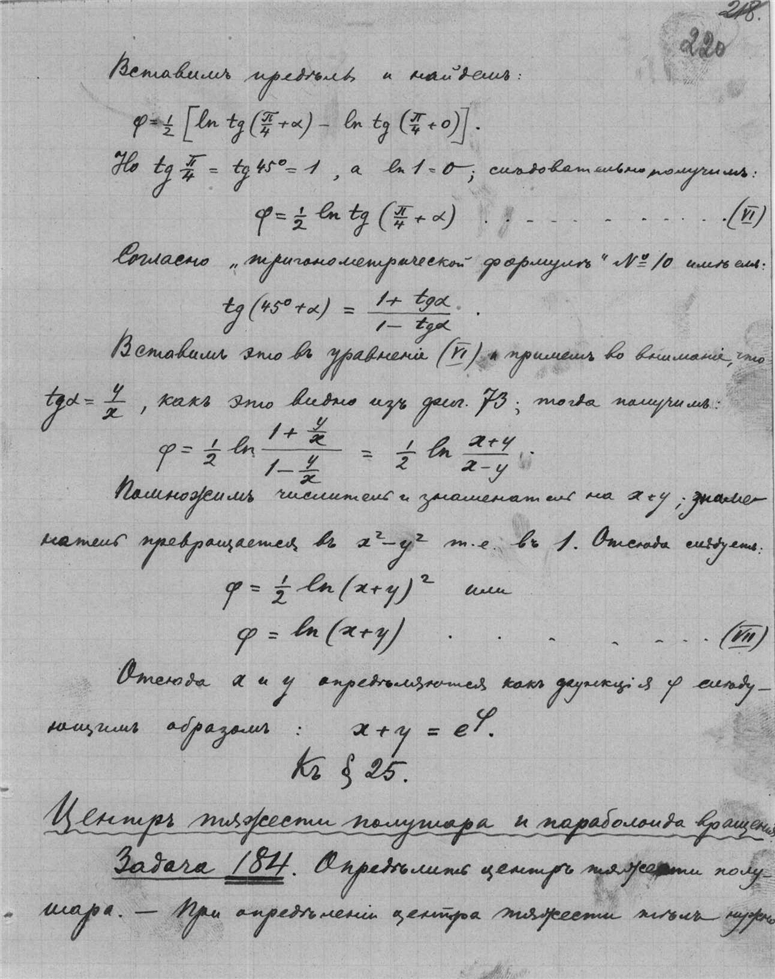 218.
220
Вставимъ предѣлы и найдемъ:
φ = 1/2 [ln tg (π/4 + α) − ln tg (π/4 + 0)].
Но tg π/4 = tg 45° = 1, а ln 1 = 0; слѣдовательно получимъ:
φ = 1/2 ln tg (π/4 + α) . . . . . . . . . . (VI)
Согласно „тригонометрической формулѣ“ № 10 имѣемъ:
tg (45° + α) = (1 + tgα)/(1 − tgα) .
Вставимъ это въ уравненіе (VI) и примемъ во вниманіе, что
tgα = y/x, какъ это видно изъ фиг. 73; тогда получимъ:
φ = 1/2 ln (1 + y/x)/(1 − y/x) = 1/2 ln (x+y)/(x−y) .
Помножимъ числитель и знаменатель на x+y; знаме-
натель превращается въ x² − y² т.е. въ 1. Отсюда слѣдуетъ:
φ = 1/2 ln (x+y)² или
φ = ln (x+y) . . . . . . . . (VII)
Отсюда x и y опредѣляются какъ функція φ слѣду-
ющимъ образомъ: x+y = e^φ.
Къ § 25.
Центръ тяжести полушара и параболоида вращенія
Задача 184. Опредѣлить центръ тяжести полу-
шара. — При опредѣленіи центра тяжести тѣлъ нужно